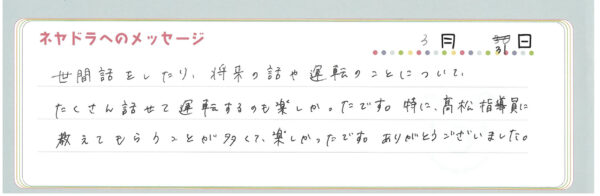 ネヤドラへのメッセージ
3月 31日
世間話をしたり、将来の話や運転のことについて、
たくさん話せて運転するのも楽しかったです。特に、髙松指導員に
教えてもらうことが多くて、楽しかったです。ありがとうございました。